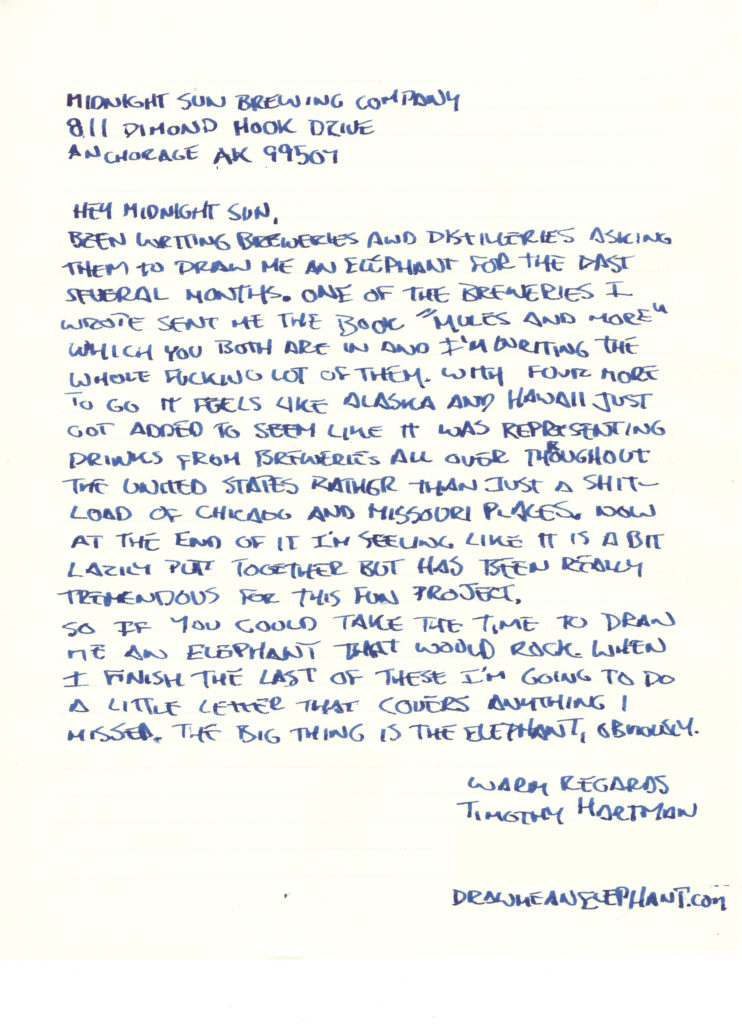 MIDNIGHT SUN BREWING COMPANY
8111 DIMOND HOOK DRIVE
ANCHORAGE AK 99507
HEY MIDNIGHT SUN,
BEEN WRITING BREWERIES AND DISTILLERIES ASKING
THEM TO DRAW ME AN ELEPHANT FOR THE PAST
SEVERAL MONTHS. ONE OF THE BREWERIES I
WROTE SENT ME THE BOOK "MULES AND MORE"
WHICH YOU BOTH ARE IN AND I'M WRITING THE
WHOLE FUCKING LOT OF THEM. WITH FOUR MORE
TO GO IT FEELS LIKE ALASKA AND HAWAII JUST
GOT ADDED TO SEEM LIKE IT WAS REPRESENTING
DRINKS FROM BREWERIES ALL OVER THROUGHOUT
THE UNITED STATES RATHER THAN JUST A SHIT-
LOAD OF CHICAGO AND MISSOURI PLACES. NOW
AT THE END OF IT I'M SEEING LIKE IT IS A BIT
LAZILY PUT TOGETHER BUT HAS BEEN REALLY
TREMENDOUS FOR THIS FUN PROJECT.
SO IF YOU COULD TAKE THE TIME TO DRAW
ME AN ELEPHANT THAT WOULD ROCK. WHEN
I FINISH THE LAST OF THESE I'M GOING TO DO
A LITTLE LETTER THAT COVERS ANYTHING I
MISSED. THE BIG THING IS THE ELEPHANT, OBVIOUSLY.
WARM REGARDS
TIMOTHY HARTMAN
DRAWMEANELEPHANT.COM